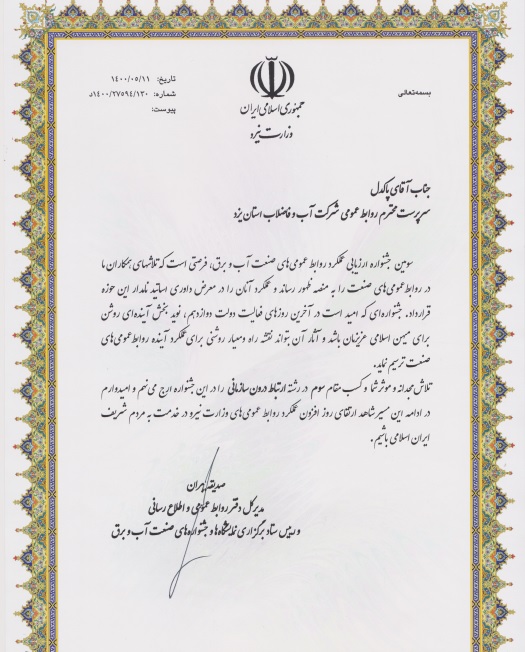 بسمه‌تعالی
جمهوری اسلامی ایران
وزارت نیرو
تاریخ: ۱۴۰۰/۰۵/۱۱
شماره: ۱۴۰۰/۲۷۵۹۴/۱۳۰د
پیوست:
جناب آقای پاکدل
سرپرست محترم روابط عمومی شرکت آب و فاضلاب استان یزد
سومین جشنواره ارزیابی عملکرد روابط عمومی‌های صنعت آب و برق، فرصتی است که تلاشهای همکاران ما
در روابط عمومی‌های صنعت را به منصه ظهور رساند و عملکرد آنان را در معرض داوری اساتید نامدار این حوزه
قرارداد. جشنواره‌ای که امید است در آخرین روزهای فعالیت دولت دوازدهم، نوید بخش آینده‌ای روشن
برای میهن اسلامی عزیزمان باشد و آثار آن بتواند نقشه راه و معیار روشنی برای عملکرد آینده روابط عمومی‌های
صنعت ترسیم نماید.
تلاش مجدانه و موثر شما و کسب مقام سوم در رشته ارتباط درون سازمانی را در این جشنواره ارج می نهم و امیدوارم
در ادامه این مسیر شاهد ارتقای روز افزون عملکرد روابط عمومی‌های وزارت نیرو در خدمت به مردم شریف
ایران اسلامی باشیم.
صدیقه ببران
مدیرکل دفتر روابط عمومی و اطلاع رسانی
و رییس ستاد برگزاری نمایشگاه‌ها و جشنواره‌های صنعت آب و برق